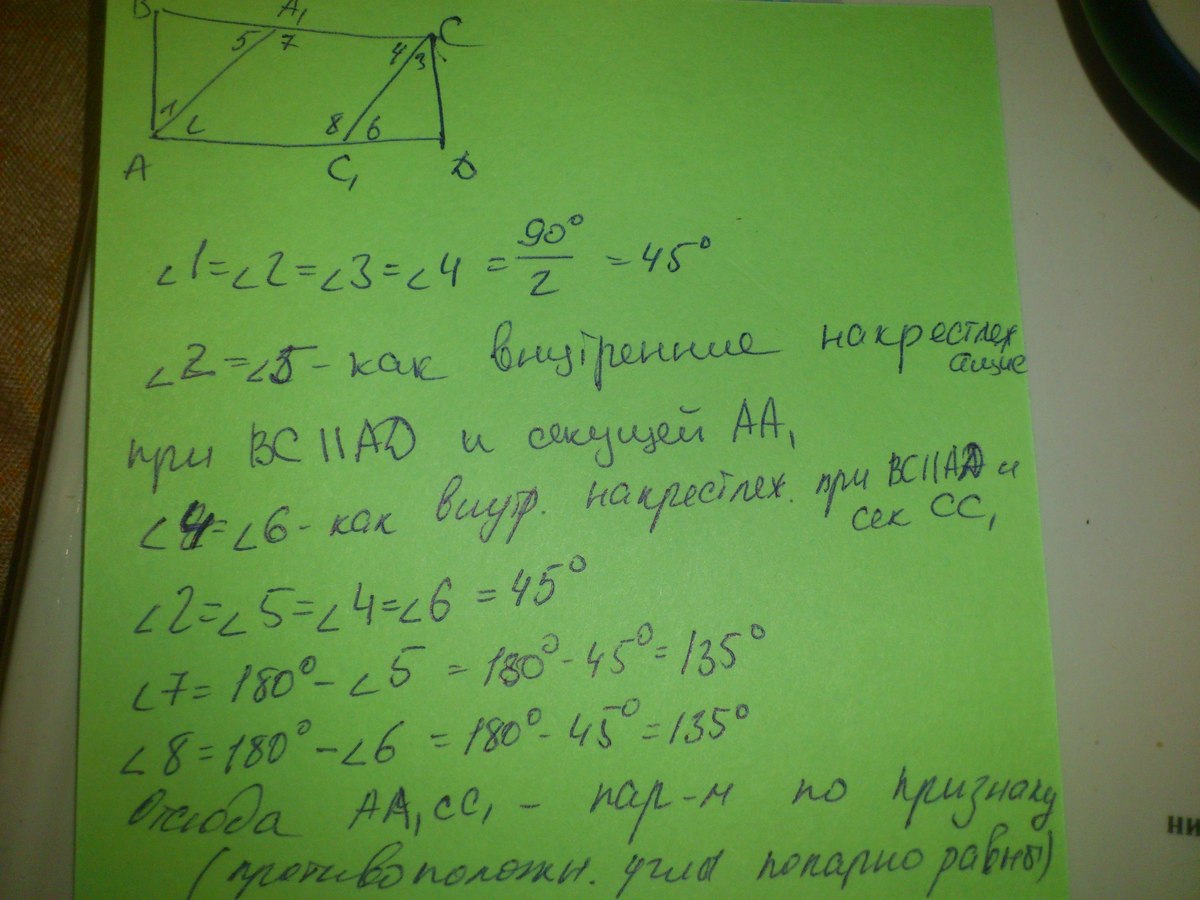 B A₁ C
5 7 4 3
1 2 8 6
A C₁ D
∠1=∠2=∠3=∠4 = 90°/2 = 45°
∠2=∠5 - как внутренние накрестлежащие
при BC || AD и секущей AA₁
∠4=∠6 - как внутр. накрестлеж. при BC||AD и
сек CC₁
∠2=∠5=∠4=∠6 = 45°
∠7= 180° - ∠5 = 180° - 45° = 135°
∠8=180° - ∠6 = 180° - 45° = 135°
Отсюда AA₁CC₁ - пар-м по признаку
(противоположн. углы попарно равны)
ни